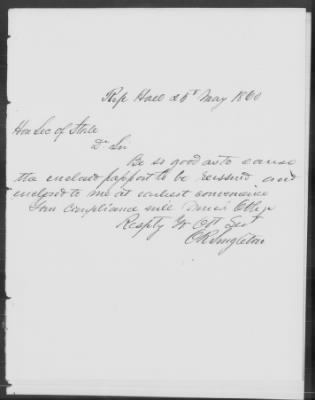 Rep Hall 25th May 1860
Hon Sec of State
Dr Sir
Be so good as to cause
the enclosed passport to be reissued and
enclosed to me at earliest convenience
Your compliance will
Respty Yr Obt Sert
O R Singleton